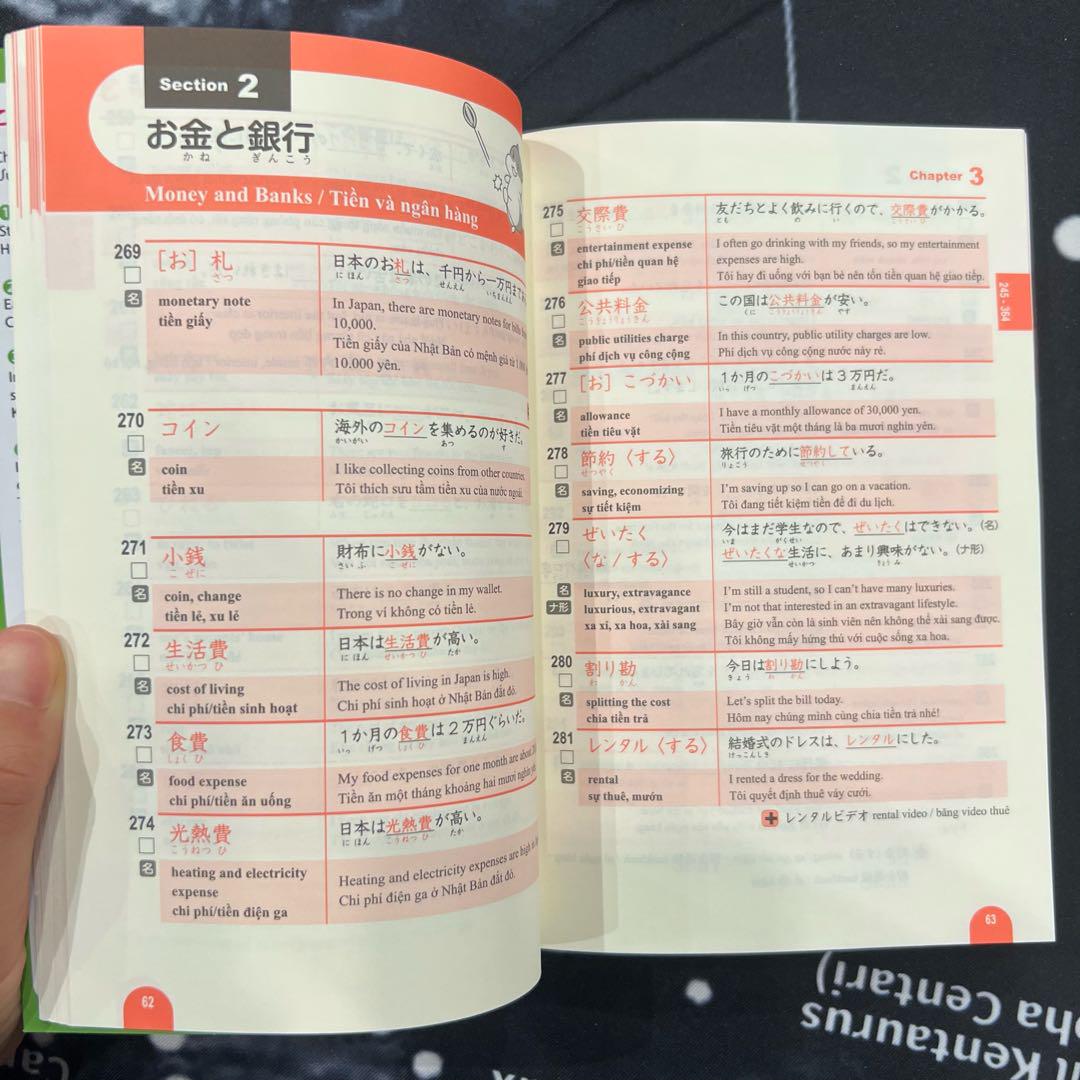 Section 2
お金と銀行
かね ぎんこう
Money and Banks / Tiền và ngân hàng
269
[お] 札
さつ
名
monetary note
tiền giấy
日本のお札は、千円から一万円まで
にほん さつ せんえん いちまんえん
In Japan, there are monetary notes for bills
10,000.
Tiền giấy của Nhật Bản có mệnh giá từ 1.000
10.000 yên.
270
コイン
名
coin
tiền xu
海外のコインを集めるのが好きだ。
かいがい あつ す
I like collecting coins from other countries.
Tôi thích sưu tầm tiền xu của nước ngoài.
271
小銭
こぜに
名
coin, change
tiền lẻ, xu lẻ
財布に小銭がない。
さいふ こぜに
There is no change in my wallet.
Trong ví không có tiền lẻ.
272
生活費
せいかつひ
名
cost of living
chi phí/tiền sinh hoạt
日本は生活費が高い。
にほん せいかつひ たか
The cost of living in Japan is high.
Chi phí sinh hoạt ở Nhật Bản đắt đỏ.
273
食費
しょくひ
名
food expense
chi phí/tiền ăn uống
1か月の食費は2万円ぐらいだ。
いっ げつ しょくひ まんえん
My food expenses for one month are about
Tiền ăn một tháng khoảng hai mươi nghìn
274
光熱費
こうねつひ
名
heating and electricity
expense
chi phí/tiền điện ga
日本は光熱費が高い。
にほん こうねつひ たか
Heating and electricity expenses are high
Chi phí điện ga ở Nhật Bản đắt đỏ.
62
Chapter 3
275
交際費
こうさいひ
名
entertainment expense
chi phí/tiền quan hệ
giao tiếp
友だちとよく飲みに行くので、交際費がかかる。
とも の い
I often go drinking with my friends, so my entertainment
expenses are high.
Tôi hay đi uống với bạn bè nên tốn tiền quan hệ giao tiếp.
245 - 364
276
公共料金
こうきょうりょうきん
名
public utilities charge
phí dịch vụ công cộng
この国は公共料金が安い。
くに こうきょうりょうきん やす
In this country, public utility charges are low.
Phí dịch vụ công cộng nước này rẻ.
277
[お] こづかい
名
allowance
tiền tiêu vặt
1か月のこづかいは3万円だ。
いっ げつ まんえん
I have a monthly allowance of 30,000 yen.
Tiền tiêu vặt một tháng là ba mươi nghìn yên.
278
節約〈する〉
せつやく
名
saving, economizing
sự tiết kiệm
旅行のために節約している。
りょこう せつやく
I'm saving up so I can go on a vacation.
Tôi đang tiết kiệm tiền để đi du lịch.
279
ぜいたく
〈な/する〉
名
ナ形
luxury, extravagance
luxurious, extravagant
xa xỉ, xa hoa, xài sang
今はまだ学生なので、ぜいたくはできない。(名)
いま がくせい
ぜいたくな生活に、あまり興味がない。(ナ形)
せいかつ きょうみ
I'm still a student, so I can't have many luxuries.
I'm not that interested in an extravagant lifestyle.
Bây giờ vẫn còn là sinh viên nên không thể xài sang được.
Tôi không mấy hứng thú với cuộc sống xa hoa.
280
割り勘
わ かん
名
splitting the cost
chia tiền trả
今日は割り勘にしよう。
きょう わ かん
Let's split the bill today.
Hôm nay chúng mình cùng chia tiền trả nhé!
281
レンタル〈する〉
名
rental
sự thuê, mướn
結婚式のドレスは、レンタルにした。
けっこんしき
I rented a dress for the wedding.
Tôi quyết định thuê váy cưới.
レンタルビデオ rental video / băng video thuê
63
Kentaurus
Centari)